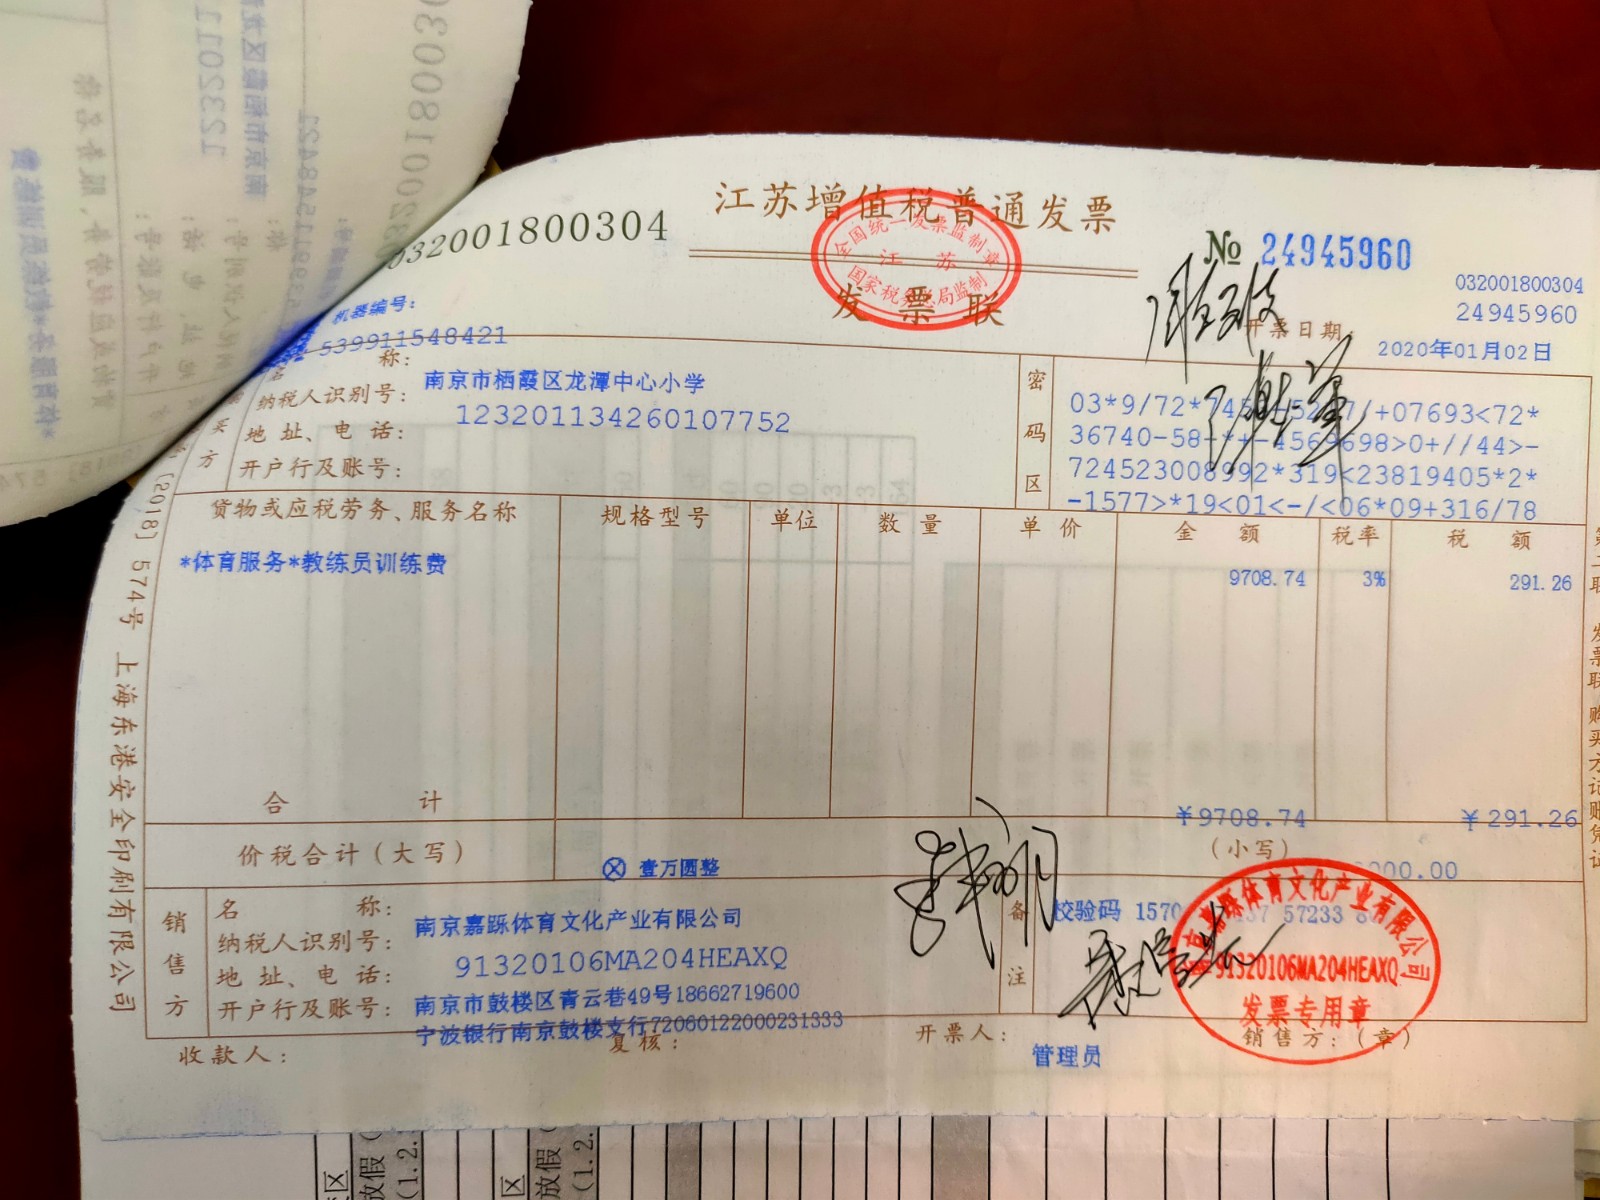 032001800304
江苏增值税普通发票
全国统一发票监制章
江苏
国家税务总局监制
发票联
№ 24945960
032001800304
24945960
机器编号:
539911548421
开票日期:
2020年01月02日
购买方
名称:
南京市栖霞区龙潭中心小学
纳税人识别号:
123201134260107752
地址、电话:
开户行及账号:
密码区
36740-58-*+-4569698>0+//44>-
724523008992*319<23819405*2*
-1577>*19<01<-/<06*09+316/78
货物或应税劳务、服务名称 规格型号 单位 数量 单价 金额 税率 税额
*体育服务*教练员训练费 9708.74 3% 291.26
合计 ¥9708.74 ¥291.26
价税合计(大写) ⊗ 壹万圆整 (小写) 000.00
销售方
名称:
南京嘉跞体育文化产业有限公司
纳税人识别号:
91320106MA204HEAXQ
地址、电话:
南京市鼓楼区青云巷49号18662719600
开户行及账号:
宁波银行南京鼓楼支行72060122000231333
备注
校验码 1570 57233
91320106MA204HEAXQ
发票专用章
收款人:
复核:
开票人:
管理员
销售方:(章)
〔2018〕574号 上海东港安全印刷有限公司
第二联 发票联 购买方记账凭证